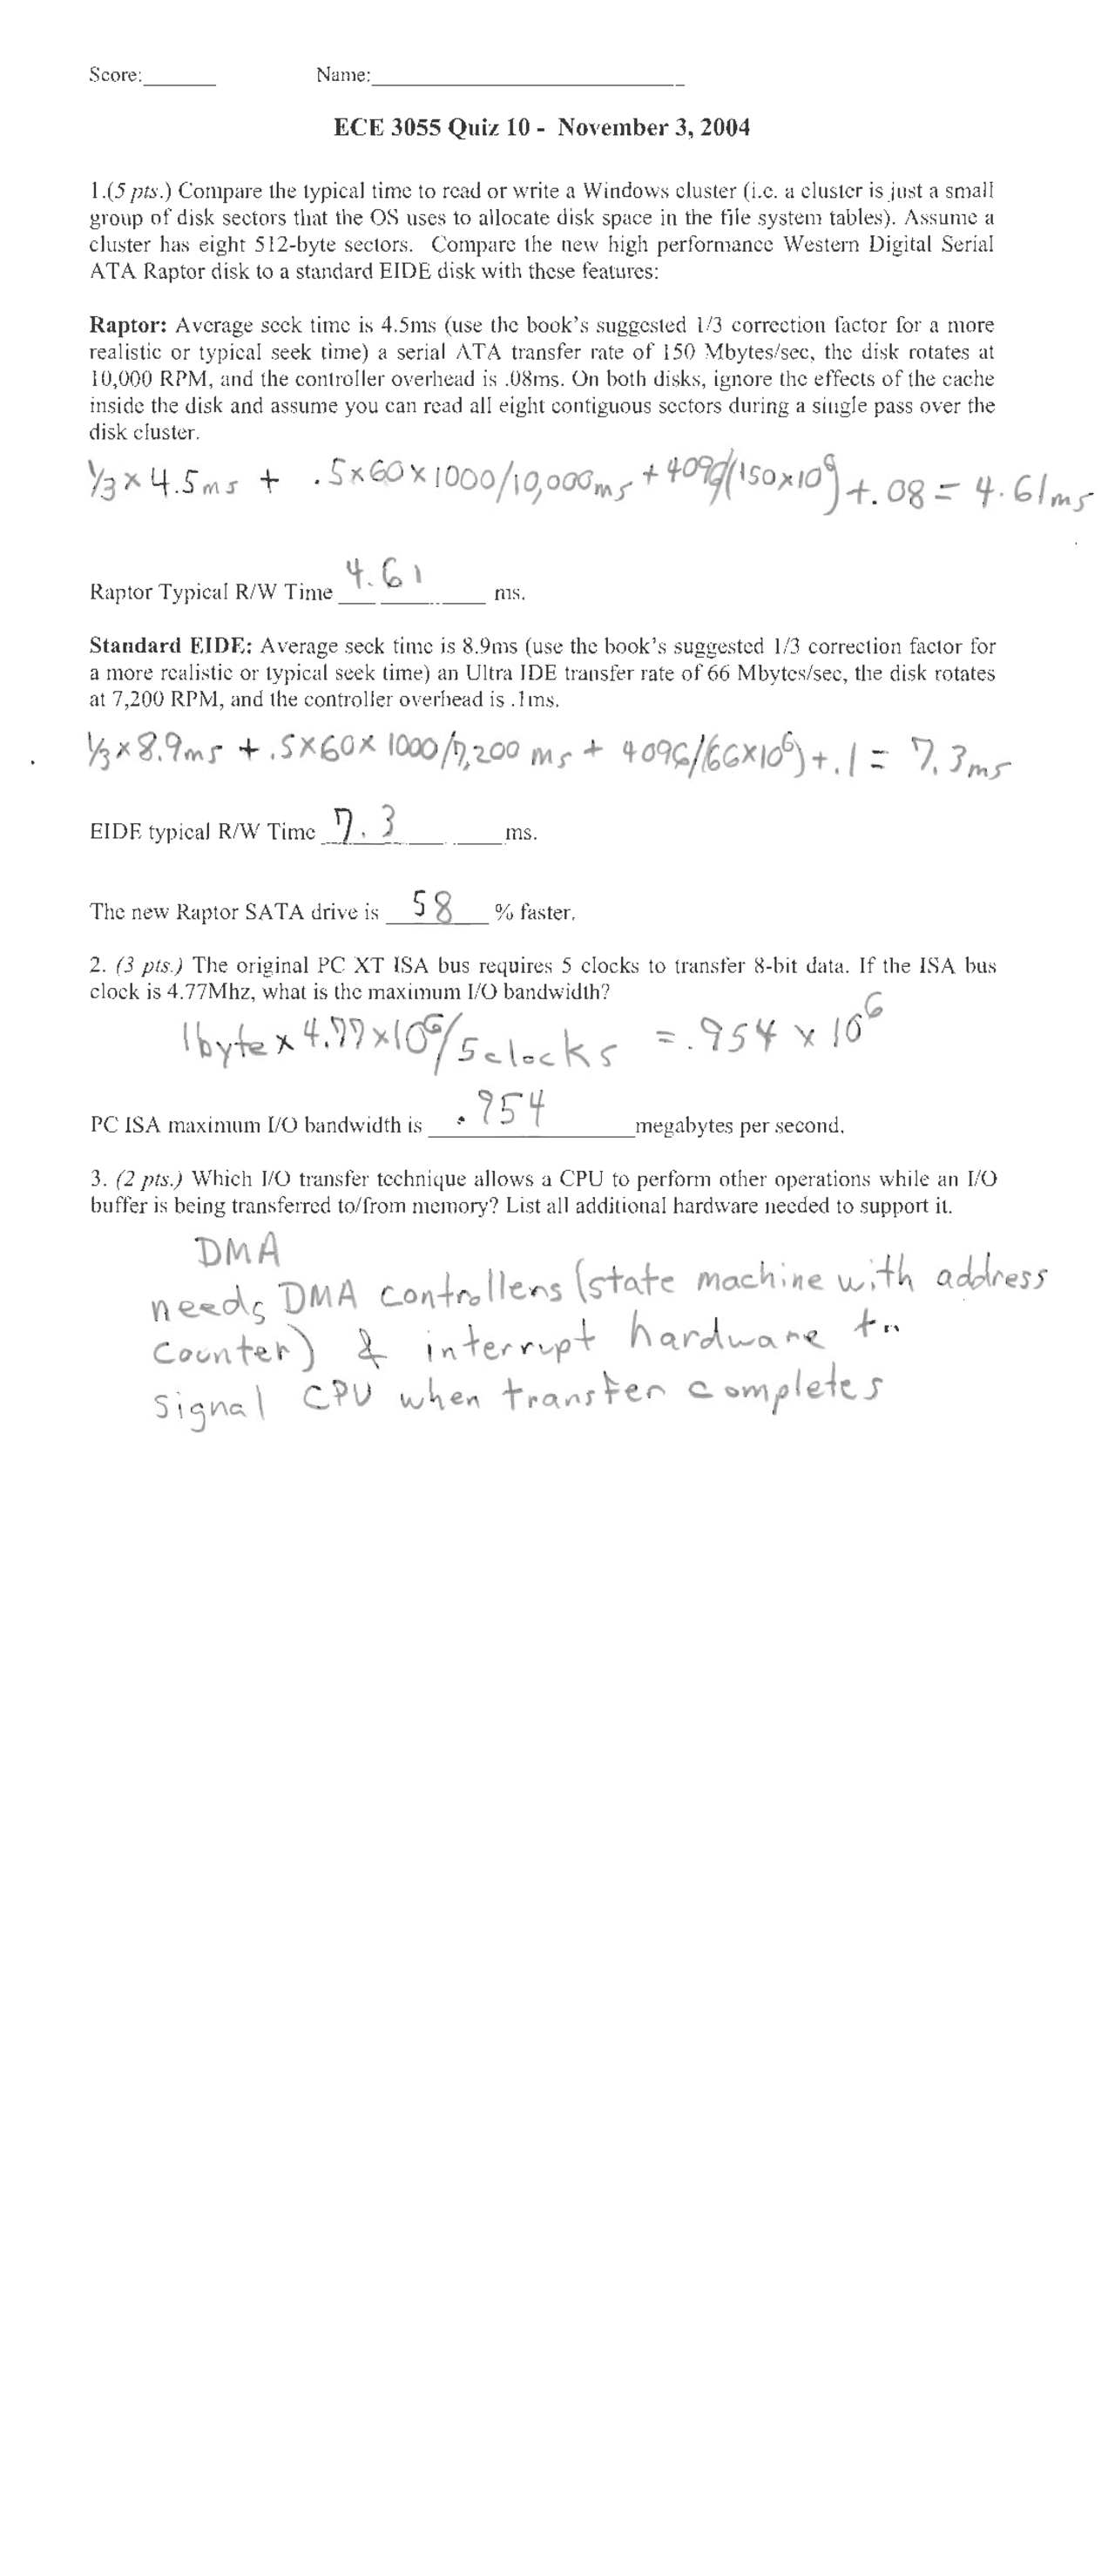 Score:_______ Name:______________________________
ECE 3055 Quiz 10 - November 3, 2004
1.(5 pts.) Compare the typical time to read or write a Windows cluster (i.e. a cluster is just a small
group of disk sectors that the OS uses to allocate disk space in the file system tables). Assume a
cluster has eight 512-byte sectors. Compare the new high performance Western Digital Serial
ATA Raptor disk to a standard EIDE disk with these features:
Raptor: Average seek time is 4.5ms (use the book's suggested 1/3 correction factor for a more
realistic or typical seek time) a serial ATA transfer rate of 150 Mbytes/sec, the disk rotates at
10,000 RPM, and the controller overhead is .08ms. On both disks, ignore the effects of the cache
inside the disk and assume you can read all eight contiguous sectors during a single pass over the
disk cluster.
1/3 × 4.5ms + .5×60×1000/10,000ms + 4096/(150×10^6) + .08 = 4.61ms
Raptor Typical R/W Time 4.61 ms.
Standard EIDE: Average seek time is 8.9ms (use the book's suggested 1/3 correction factor for
a more realistic or typical seek time) an Ultra IDE transfer rate of 66 Mbytes/sec, the disk rotates
at 7,200 RPM, and the controller overhead is .1ms.
1/3 × 8.9ms + .5×60×1000/7,200 ms + 4096/(66×10^6) + .1 = 7.3ms
EIDE typical R/W Time 7.3 ms.
The new Raptor SATA drive is 58 % faster.
2. (3 pts.) The original PC XT ISA bus requires 5 clocks to transfer 8-bit data. If the ISA bus
clock is 4.77Mhz, what is the maximum I/O bandwidth?
1byte × 4.77×10^6/5clocks = .954 × 10^6
PC ISA maximum I/O bandwidth is .954 megabytes per second.
3. (2 pts.) Which I/O transfer technique allows a CPU to perform other operations while an I/O
buffer is being transferred to/from memory? List all additional hardware needed to support it.
DMA
needs DMA controllers (state machine with address
counter) & interrupt hardware to
signal CPU when transfer completes